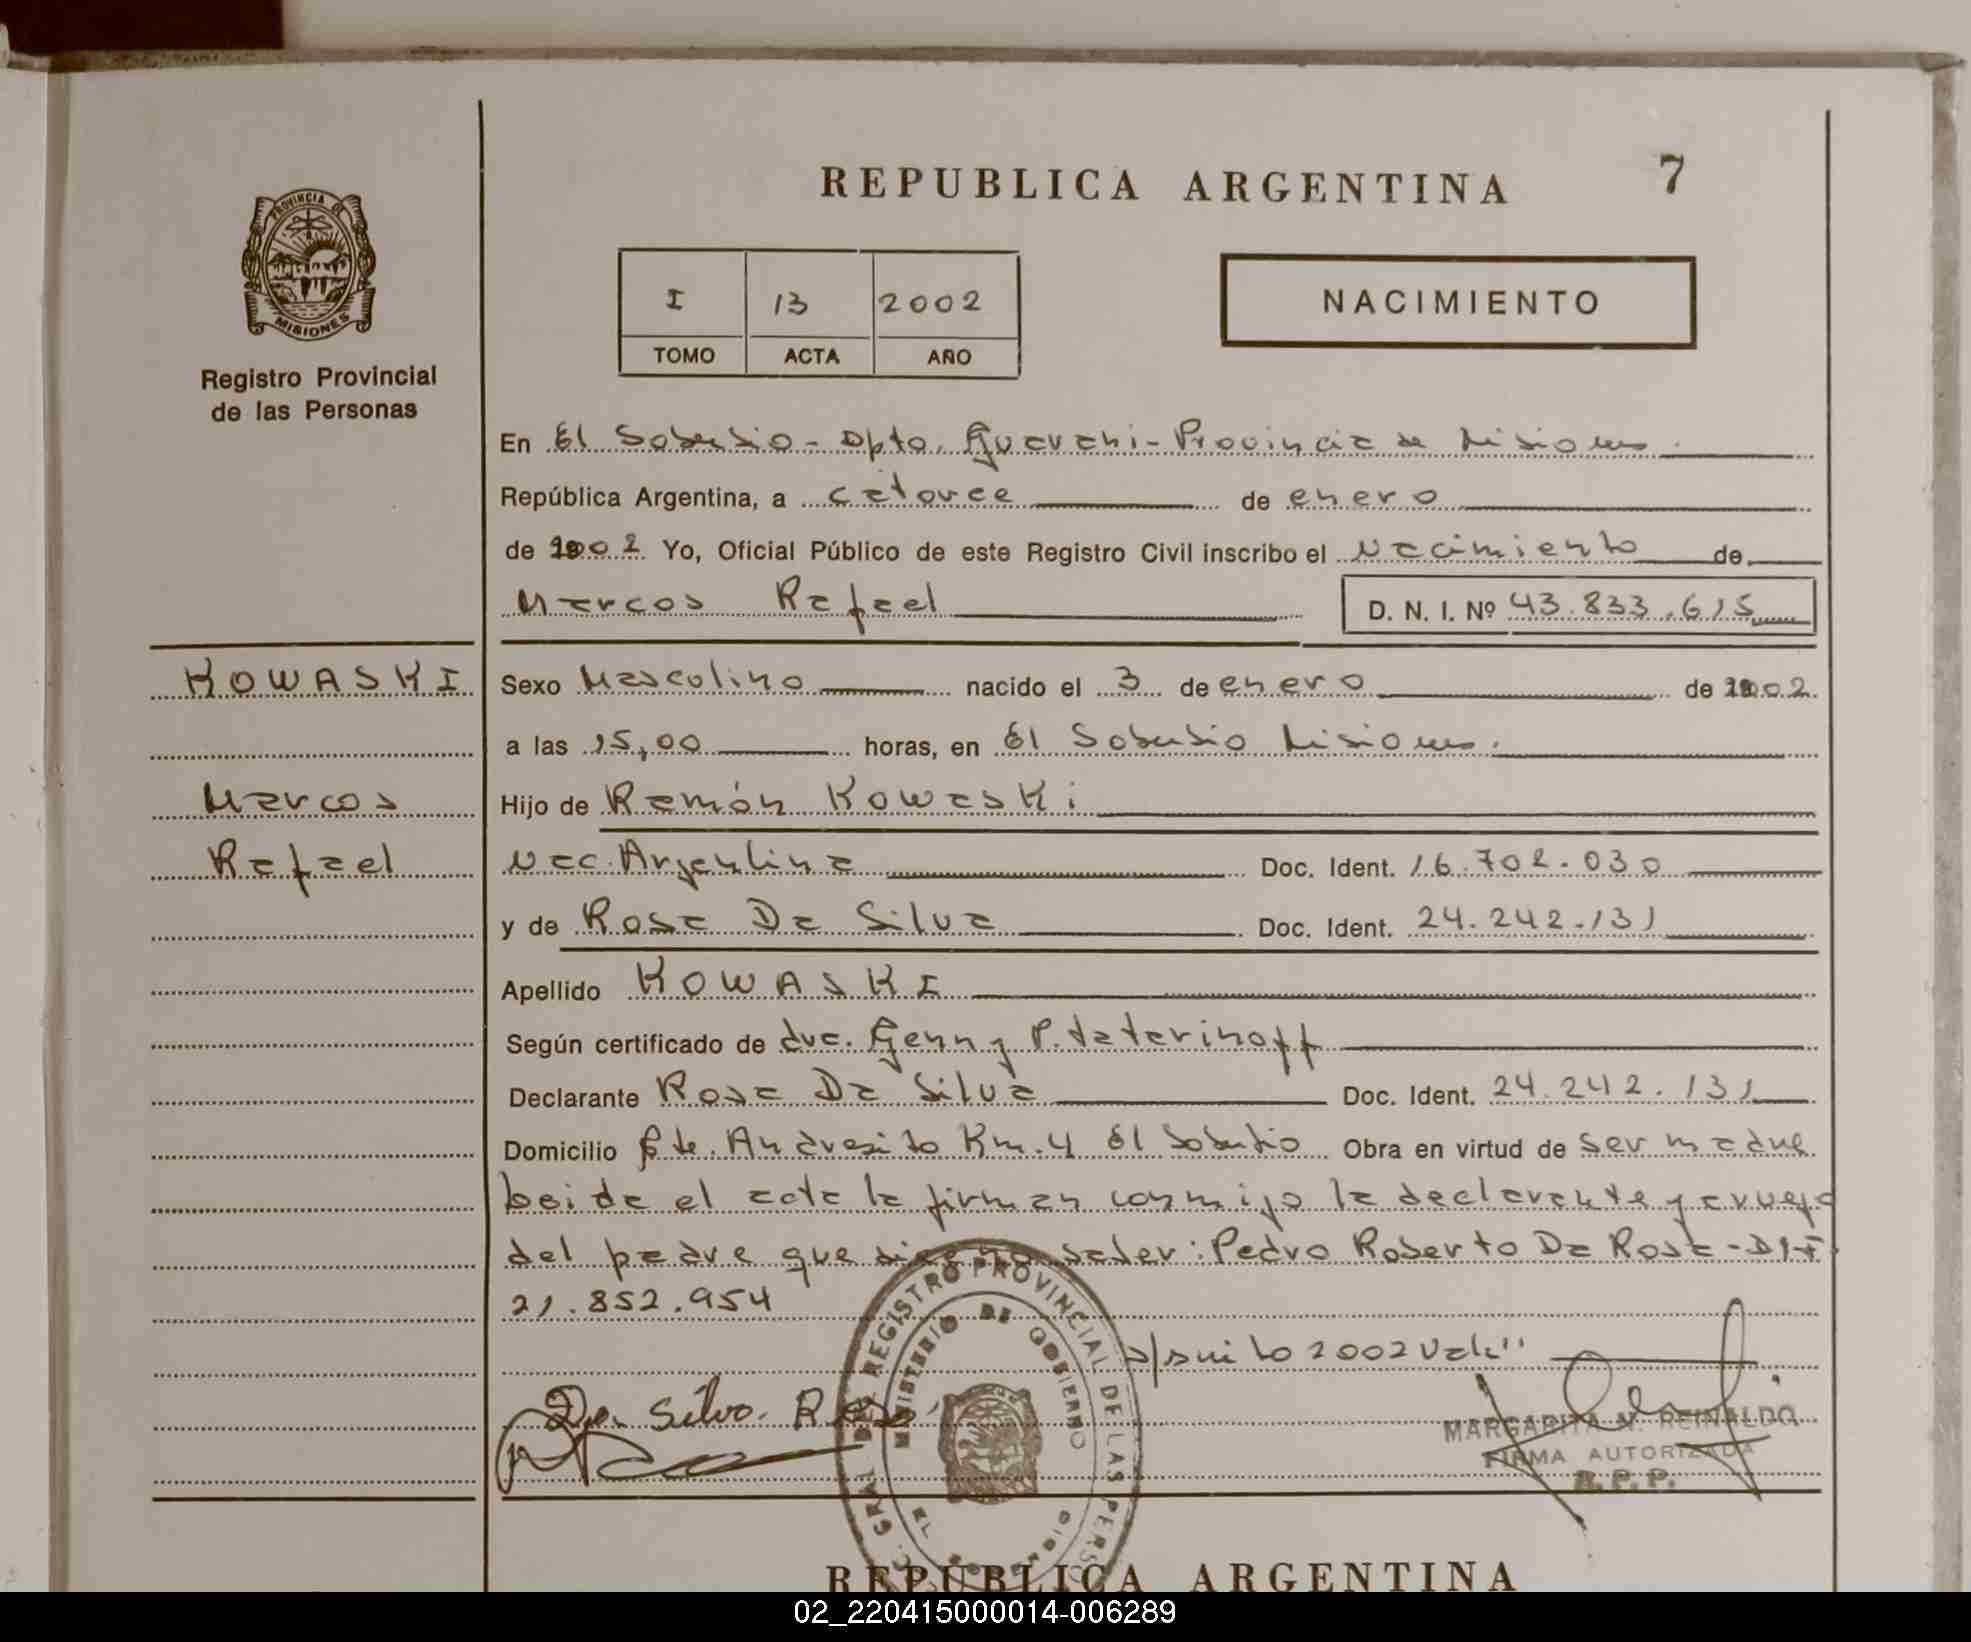 REPUBLICA ARGENTINA
7
PROVINCIA DE
MISIONES
Registro Provincial
de las Personas
I 13 2002
TOMO ACTA AÑO
NACIMIENTO
En El Soberbio - Dpto. Guarani - Provincia de Misiones.
República Argentina, a catorce de enero
de 2002 Yo, Oficial Público de este Registro Civil inscribo el Nacimiento de
Marcos Rafael D. N. I. Nº 43.833.615
KOWASKI
Sexo Masculino nacido el 3 de enero de 2002
a las 15,00 horas, en El Soberbio Misiones.
Marcos
Hijo de Ramón Kowaski
Rafael
Nac. Argentina Doc. Ident. 16.702.030
y de Rosa Da Silva Doc. Ident. 24.242.131
Apellido KOWASKI
Según certificado de
Declarante Rosa Da Silva Doc. Ident. 24.242.131
Domicilio Pte. Andresito Km. 4 El Soberbio Obra en virtud de ser madre
leida el acta la firman conmigo la declarante y a ruego
del padre que dice no saber: Pedro Roberto Da Rosa - DNI
21.852.954
s/ 2002 Vale"
Da Silva Rosa
REGISTRO PROVINCIAL DE LAS PERSONAS
MINISTERIO DE GOBIERNO
MARGARITA N. REINALDO
FIRMA AUTORIZADA
R.P.P.
REPUBLICA ARGENTINA
02_220415000014-006289